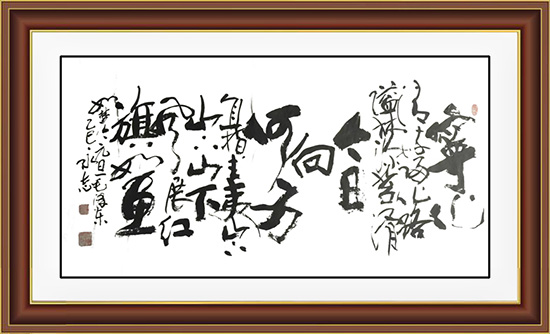 寧化
清流归化路
隘林深苔滑
今日
向
何方
直指武夷山下
山下山下
风展红
旗如画
如梦令元旦毛泽东
乙巳永志